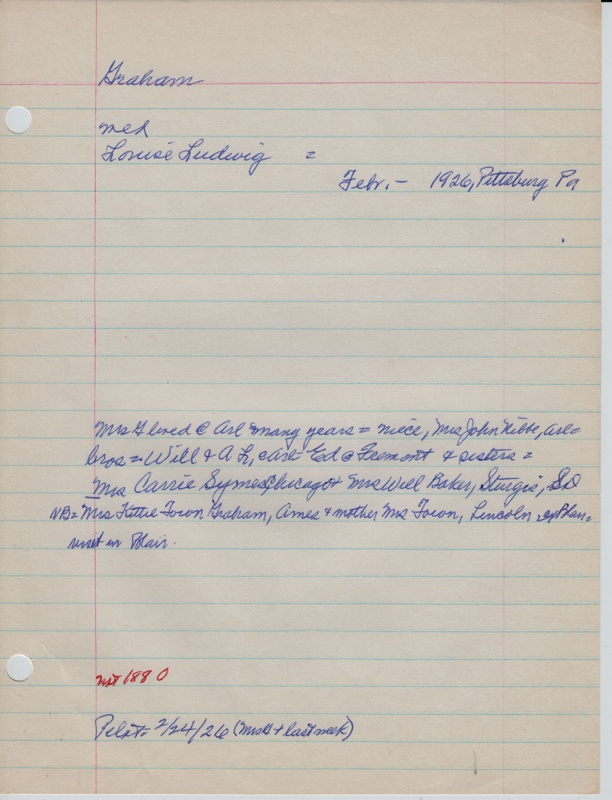 Graham
med
Louise Ludwig =
Febr. - 1926, Pittsburg Pa
Mrs G lived @ Arl & many years = niece, Mrs John Kibbe, Arl =
bros = Will & A L, Arl Ed @ Fremont & sisters =
Mrs Carrie Symes, Chicago & Mrs Will Baker, Sturgis, SD
NB = Mrs Kittie Town Graham, Ames & mother Mrs Town, Lincoln
visit in Blair.
not 1880
Pilot = 2/24/26 (Mrs G + last week)